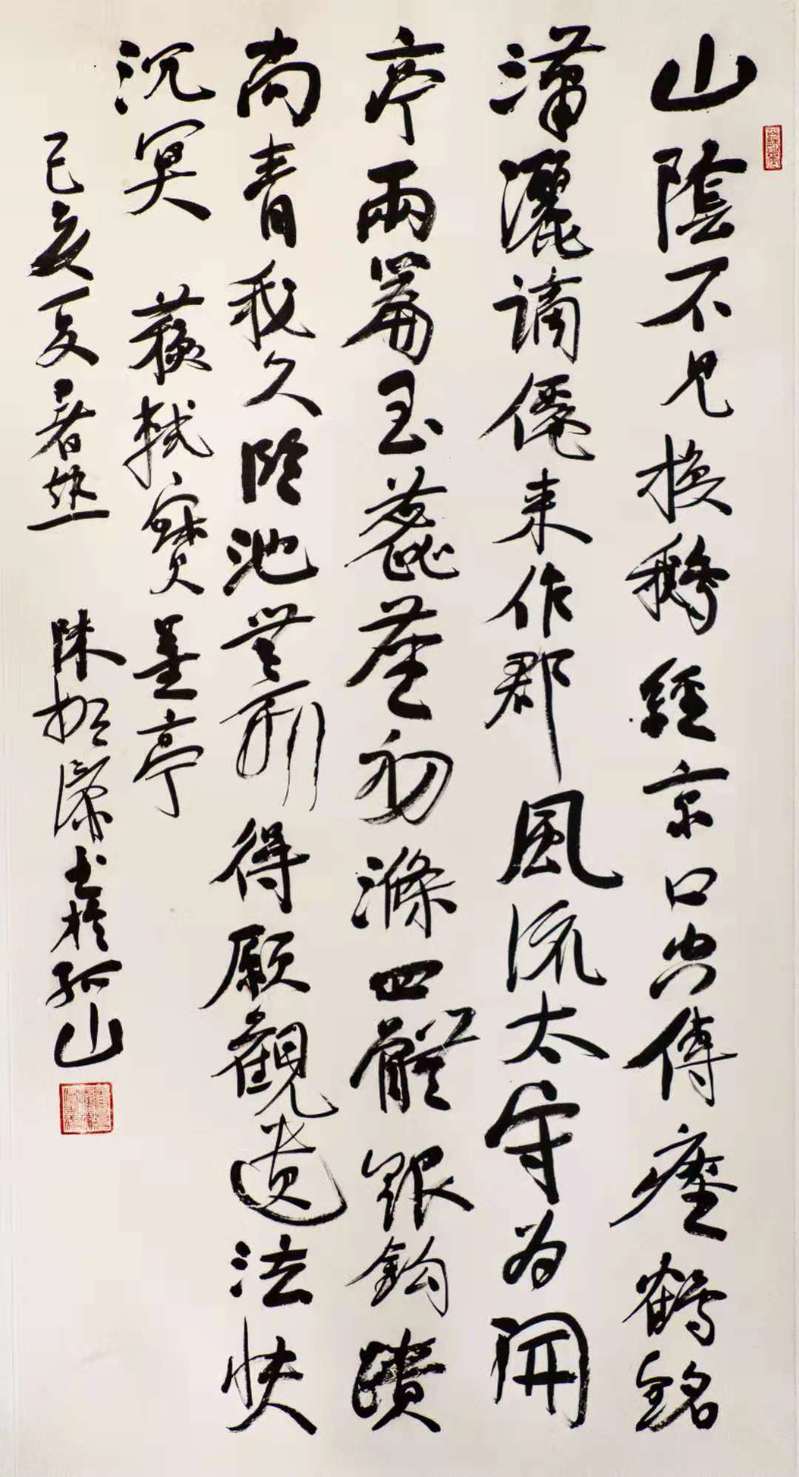 山陰不見換鵝經京口空傳瘞鶴銘
瀟灑謫僊来作郡風流太守為開
亭兩篇玉蕊塵初滌四體銀鈎蹟
尚青我久臨池無所得願觀遺法快
沉冥 蘇軾寶墨亭
己亥夏暑熱 陳振濂書於孤山